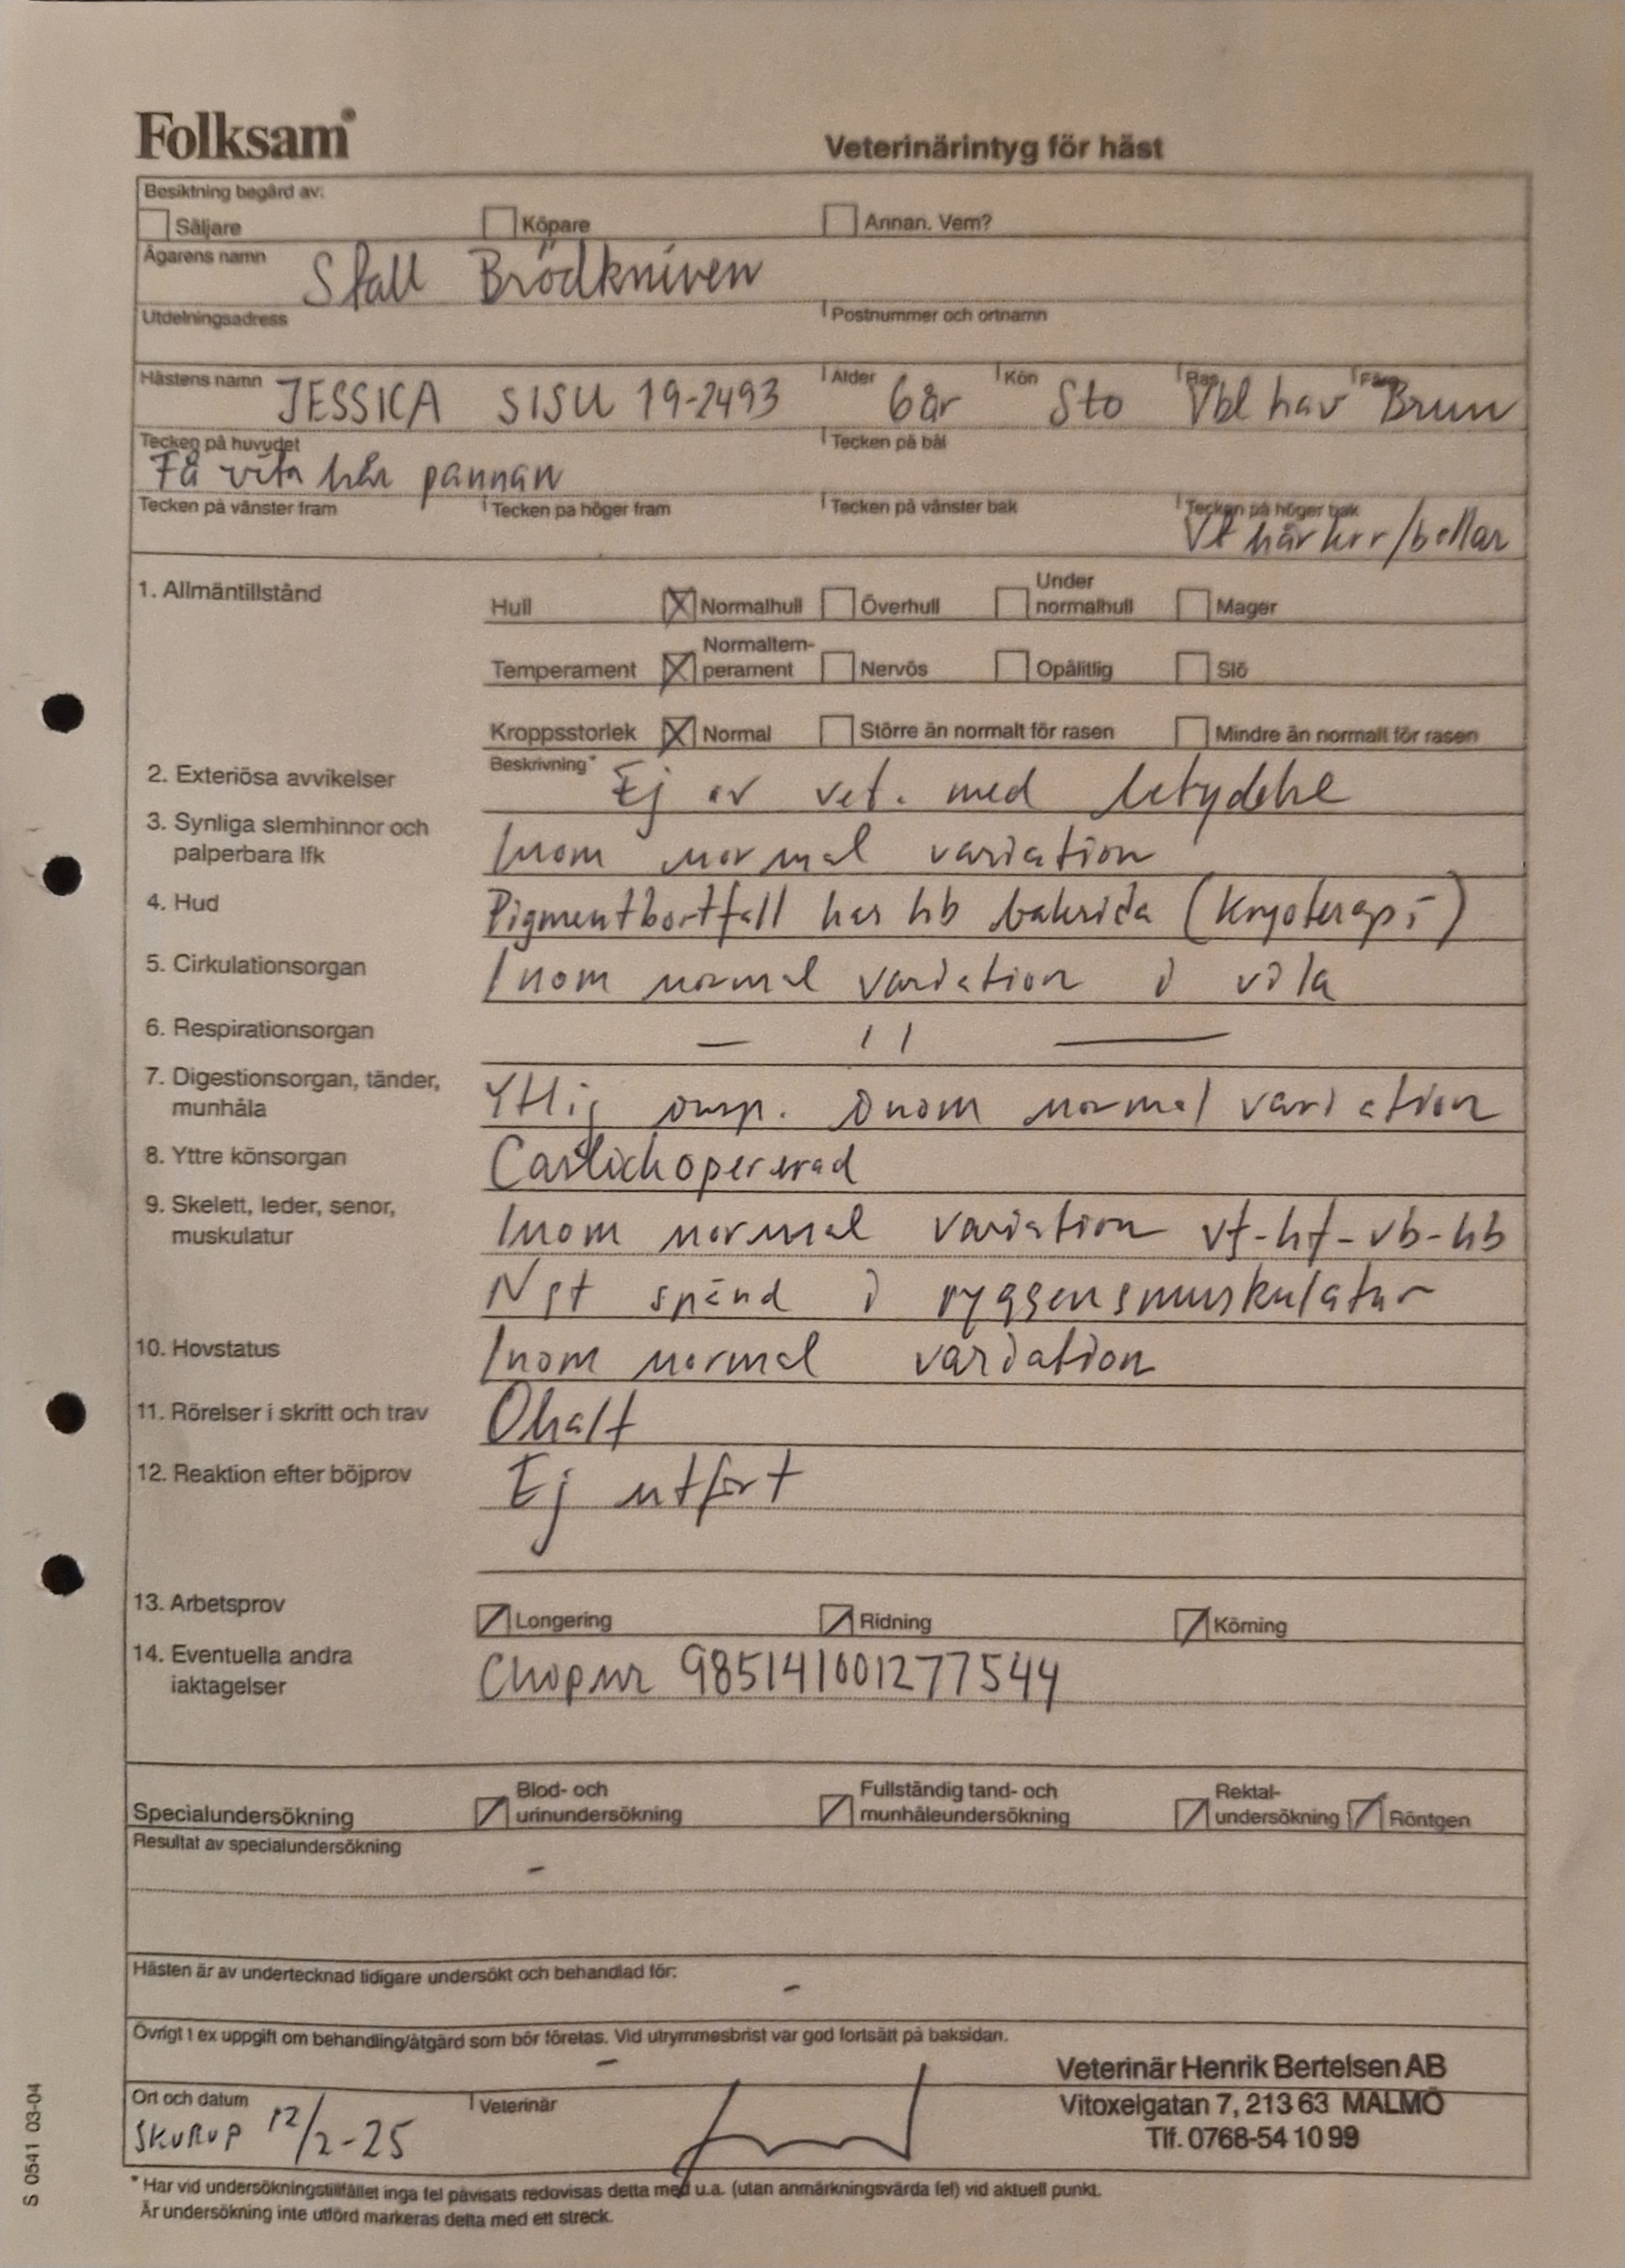 Folksam
Veterinärintyg för häst
Besiktning begärd av:
Säljare Köpare Annan. Vem?
Ägarens namn Stall Brödkniven
Utdelningsadress Postnummer och ortnamn
Hästens namn JESSICA SISU 19-2493 Ålder 6 år Kön Sto Ras Vbl trav Färg Brun
Tecken på huvudet Få vita hår pannan Tecken på bål
Tecken på vänster fram Tecken på höger fram Tecken på vänster bak Tecken på höger bak
Vt hår krr/ballar
1. Allmäntillstånd
Hull Normalhull Överhull Under normalhull Mager
Temperament Normaltem-perament Nervös Opålitlig Slö
Kroppsstorlek Normal Större än normalt för rasen Mindre än normalt för rasen
2. Exteriösa avvikelser Beskrivning* Ej av vet. med betydelse
3. Synliga slemhinnor och palperbara lfk Inom normal variation
4. Hud Pigmentbortfall has hb baksida (Kryoterapi)
5. Cirkulationsorgan Inom normal variation i vila
6. Respirationsorgan — 11 —
7. Digestionsorgan, tänder, munhåla Ytlig insp. inom normal variation
8. Yttre könsorgan Caslickopererad
9. Skelett, leder, senor, muskulatur Inom normal variation vf-hf-vb-hb
Ngt spänd i ryggensmuskulatur
10. Hovstatus Inom normal variation
11. Rörelser i skritt och trav Ohalt
12. Reaktion efter böjprov Ej utfört
13. Arbetsprov Longering Ridning Körning
14. Eventuella andra iaktagelser Chipnr 985141001277544
Specialundersökning Blod- och urinundersökning Fullständig tand- och munhåleundersökning Rektal-undersökning Röntgen
Resultat av specialundersökning
-
Hästen är av undertecknad tidigare undersökt och behandlad för:
-
Övrigt t ex uppgift om behandling/åtgärd som bör företas. Vid utrymmesbrist var god fortsätt på baksidan.
-
Veterinär Henrik Bertelsen AB
Vitoxelgatan 7, 213 63 MALMÖ
Tlf. 0768-54 10 99
Ort och datum SKURUP 12/2-25 Veterinär
* Har vid undersökningstillfället inga fel påvisats redovisas detta med u.a. (utan anmärkningsvärda fel) vid aktuell punkt.
Är undersökning inte utförd markeras detta med ett streck.
S 0541 03-04